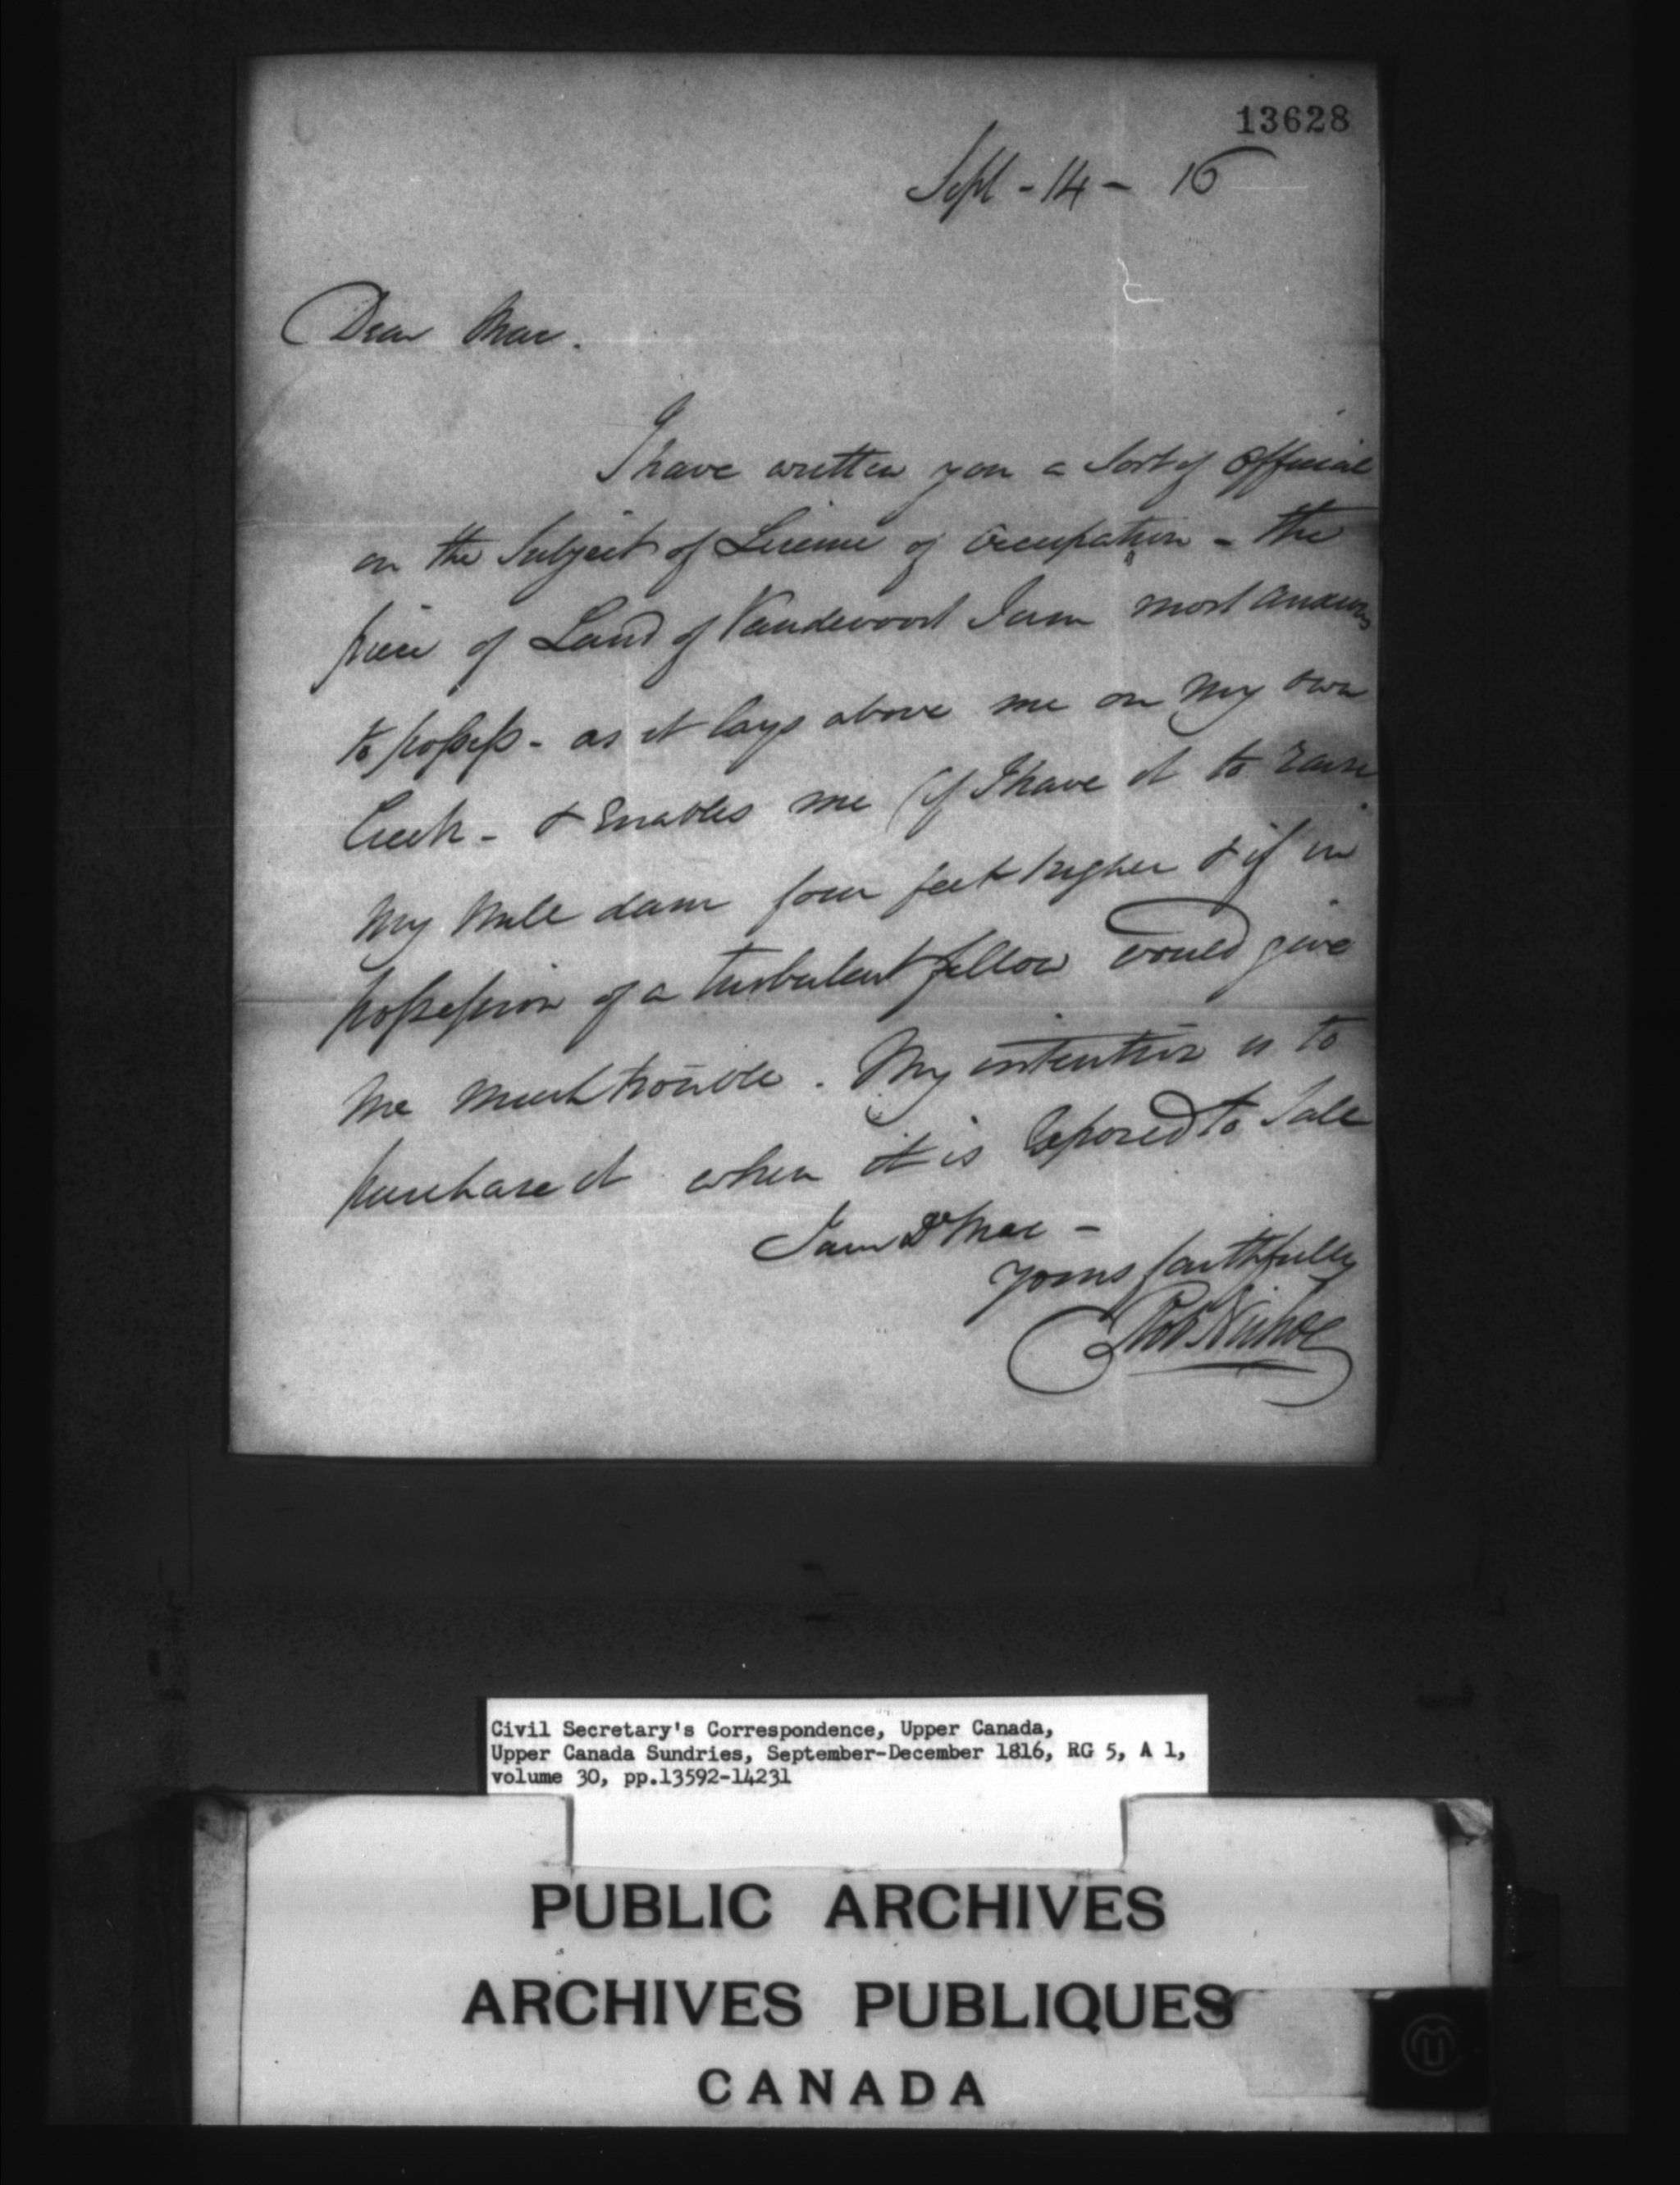 13628
Sept - 14 - 16
Dear Mac.
I have written you a sort of Official
on the Subject of License of Occupation - the
piece of Land of Vandevoort I am most anxious
to possess - as it lays above me on my own
Creek - & Enables me (if I have it to raise
My Mill dam four feet higher & if in
possession of a turbulent fellow would give
me much trouble. My intention is to
purchase it when it is Exposed to Sale
I am Dr Mac -
yours faithfully
Rob Nichol
Civil Secretary's Correspondence, Upper Canada,
Upper Canada Sundries, September-December 1816, RG 5, A 1,
volume 30, pp.13592-14231
PUBLIC ARCHIVES
ARCHIVES PUBLIQUES
CANADA